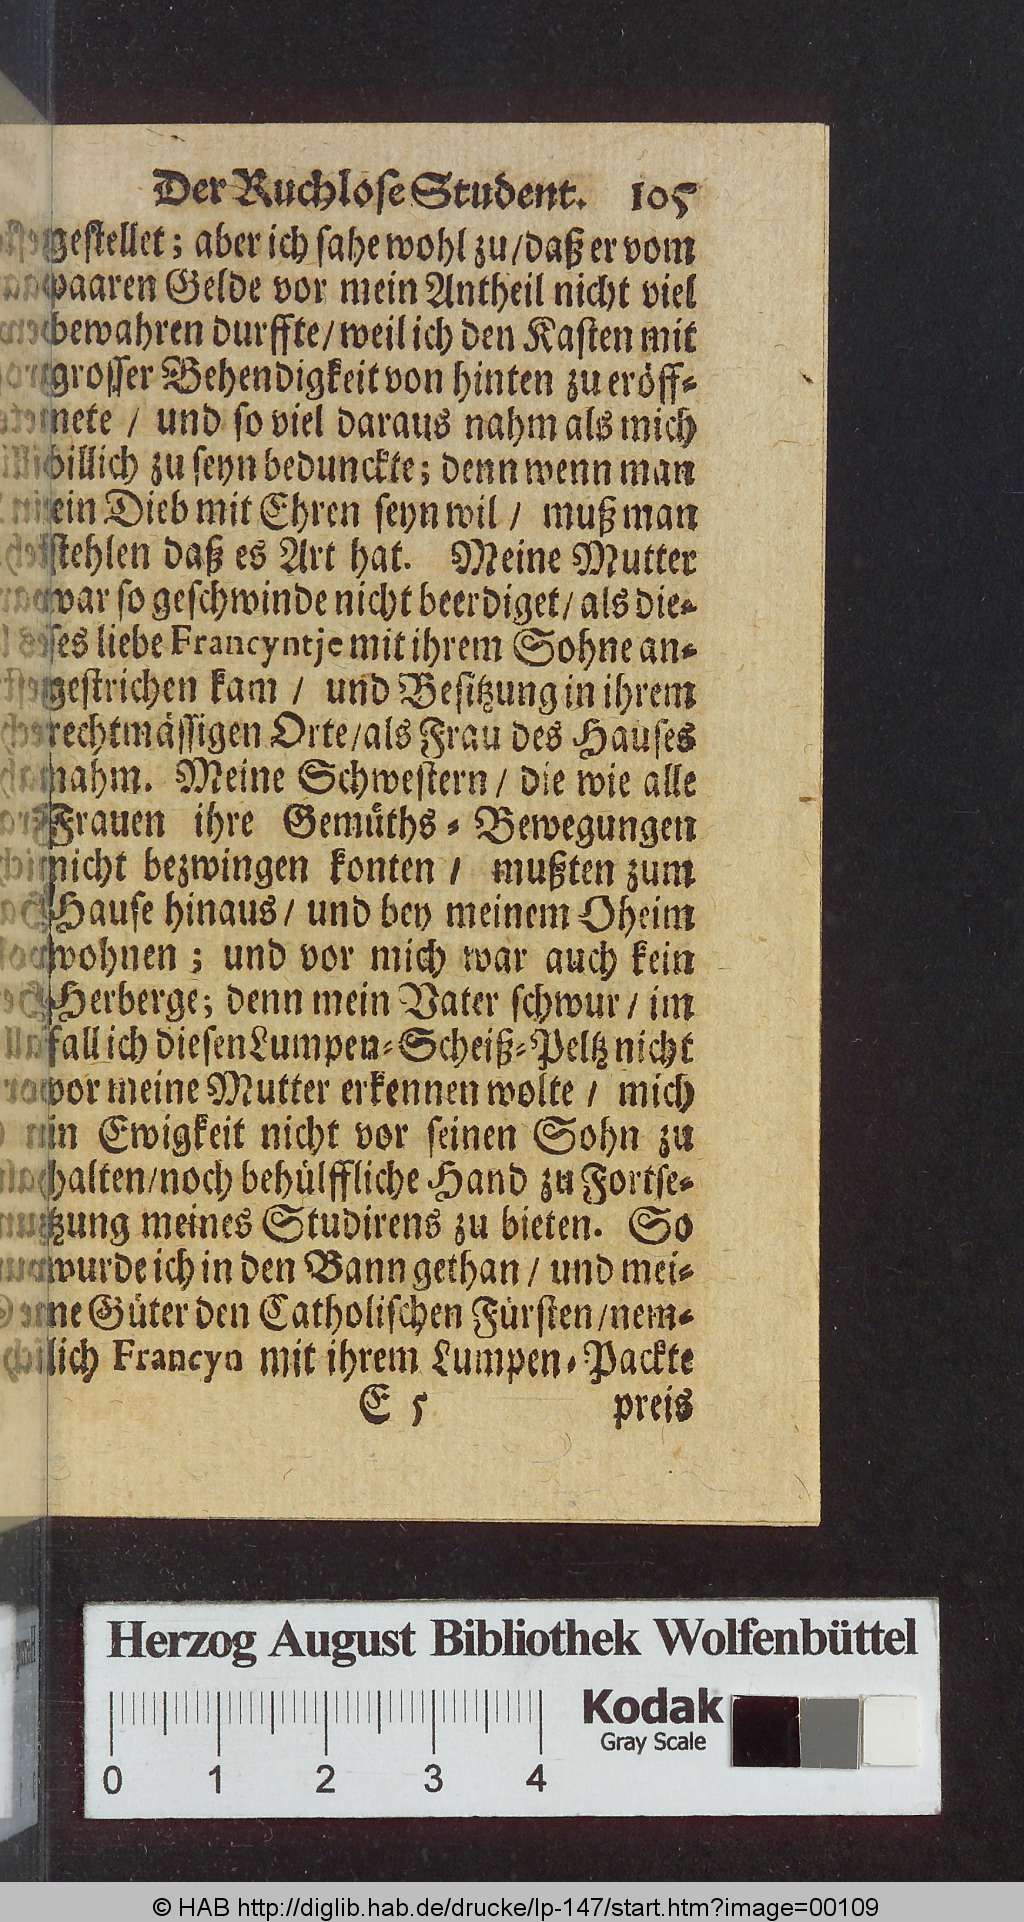 Der Ruchlose Student. 105
gestellet; aber ich sahe wohl zu/daß er vom
paaren Gelde vor mein Antheil nicht viel
bewahren durffte/weil ich den Kasten mit
grosser Behendigkeit von hinten zu eröff-
nete / und so viel daraus nahm als mich
billich zu seyn bedunckte; denn wenn man
ein Dieb mit Ehren seyn wil / muß man
stehlen daß es Art hat. Meine Mutter
war so geschwinde nicht beerdiget/als die-
ses liebe Francyntje mit ihrem Sohne an-
gestrichen kam / und Besitzung in ihrem
rechtmässigen Orte/als Frau des Hauses
nahm. Meine Schwestern / die wie alle
Frauen ihre Gemüths-Bewegungen
nicht bezwingen konten / mußten zum
Hause hinaus / und bey meinem Oheim
wohnen ; und vor mich war auch kein
Herberge; denn mein Vater schwur / im
fall ich diesen Lumpen-Scheiß-Peltz nicht
vor meine Mutter erkennen wolte / mich
in Ewigkeit nicht vor seinen Sohn zu
halten/noch behülffliche Hand zu Fortse-
tzung meines Studirens zu bieten. So
wurde ich in den Bann gethan / und mei-
ne Güter den Catholischen Fürsten/nem-
lich Francyn mit ihrem Lumpen-Packte
E 5 preis
Herzog August Bibliothek Wolfenbüttel
Kodak
Gray Scale
0 1 2 3 4
© HAB http://diglib.hab.de/drucke/lp-147/start.htm?image=00109